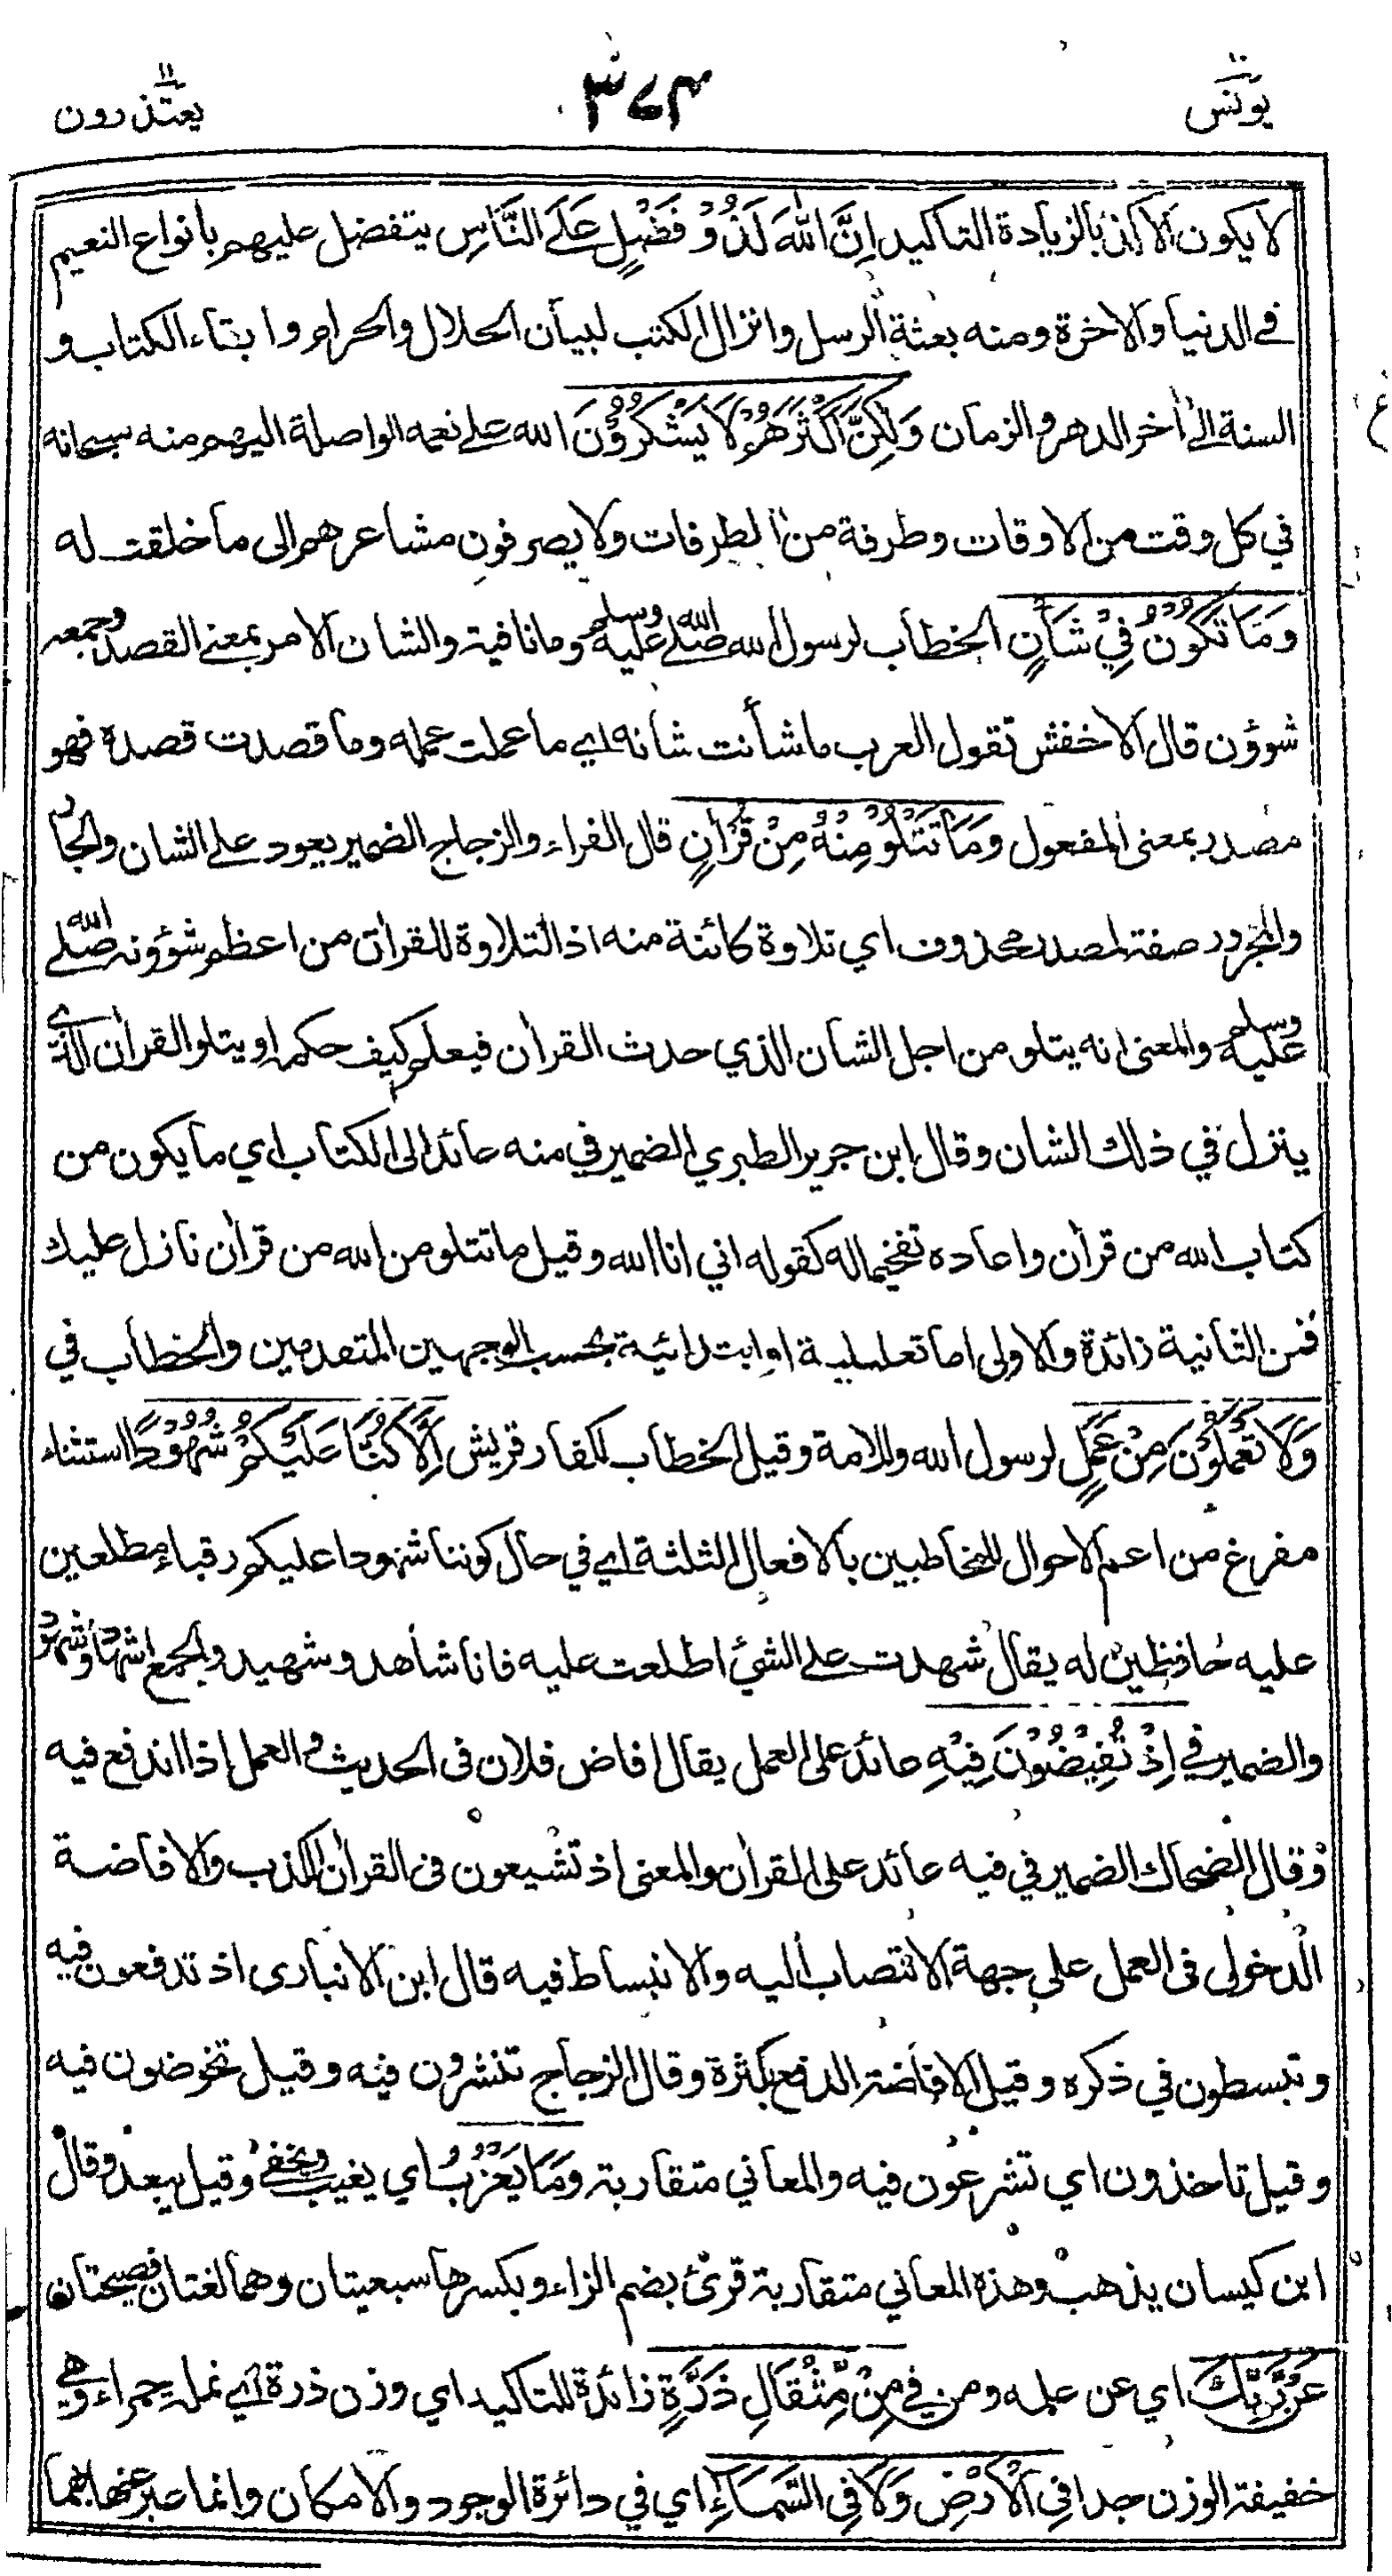 يونس ١٠
٣٧٤
يعتذرون ١١
لا يكون الا كذبا لزيادة التاكيد اِنَّ اللهَ لَذُوْ فَضْلٍ عَلَى النَّاسِ يتفضل عليهم بانواع النعيم
في الدنيا والاخرة ومنه بعثة الرسل وانزال الكتب لبيان الحلال والحرام وابقاء الكتاب و
السنة الى أخر الدهر والزمان وَلٰكِنَّ اَكْثَرَهُمْ لَا يَشْكُرُوْنَ الله على نعمه الواصلة اليهم منه سبحانه
في كل وقت من الاوقات وطرفة من الطرفات ولا يصرفون مشاعرهم الى ما خلقت له
وَمَا تَكُوْنُ فِيْ شَاْنٍ الخطاب لرسول الله صلى الله عليه وسلم وما نافية والشان الامر بمعنى القصد وجمعه
شوؤن قال الاخفش تقول العرب ما شأنت شانه اي ما عملت عمله وما قصدت قصده فهو
مصدر بمعنى المفعول وَمَا تَتْلُوْ مِنْهُ مِنْ قُرْاٰنٍ قال الفراء والزجاج الضمير يعود على الشان والجار
والمجرور صفة لمصدر محذوف اي تلاوة كائنة منه اذ التلاوة للقراٰن من اعظم شؤونه صلى الله
عليه وسلم والمعنى انه يتلو من اجل الشان الذي حدث القراٰن فيعلم كيف حكمه او يتلو القراٰن الذي
ينزل في ذلك الشان وقال ابن جرير الطبري الضمير في منه عائد الى الكتاب اي ما يكون من
كتاب الله من قراٰن واعاده تفخيما له كقوله اني انا الله وقيل ما تتلو من الله من قراٰن نازل عليك
فمن الثانية زائدة والاولى اما تعليلية او ابتدائية بحسب الوجهين المتقدمين والخطاب في
وَلَا تَعْمَلُوْنَ مِنْ عَمَلٍ لرسول الله وللامة وقيل الخطاب لكفار قريش اِلَّا كُنَّا عَلَيْكُمْ شُهُوْدًا استثناء
مفرغ من اعم الاحوال للمخاطبين بالافعال الثلثة اي في حال كوننا شهودا عليكم رقباء مطلعين
عليه حافظين له يقال شهدت على الشئ اطلعت عليه فانا شاهد وشهيد والجمع اشهاد وشهود
والضمير في اِذْ تُفِيْضُوْنَ فِيْهِ عائد على العمل يقال افاض فلان فى الحديث و العمل اذا اندفع فيه
وقال الضحاك الضمير في فيه عائد على القراٰن والمعنى اذ تشيعون فى القراٰن الكذب والافاضة
الدخول فى العمل على جهة الانتصاب اليه والانبساط فيه قال ابن الانبارى اذ تدفعون فيه
وتبسطون في ذكره وقيل الافاضة الدفع بكثرة وقال الزجاج تنشرون فيه وقيل تخوضون فيه
وقيل تاخذون اي تشرعون فيه والمعاني متقاربة وَمَا يَعْزُبُ اي يغيب ويخفى وقيل يبعد وقال
ابن كيسان يذهب وهذه المعاني متقاربة قرئ بضم الزاء وبكسرها سبعيتان وهما لغتان فصيحتان
عَنْ رَّبِّكَ اي عن علمه ومن في مِنْ مِّثْقَالِ ذَرَّةٍ زائدة للتاكيد اي وزن ذرة اي نملة حمراء وهي
خفيفة الوزن جدا فِي الْاَرْضِ وَلَا فِى السَّمَاۤءِ اي في دائرة الوجود والامكان وانما عبر عنها بهما